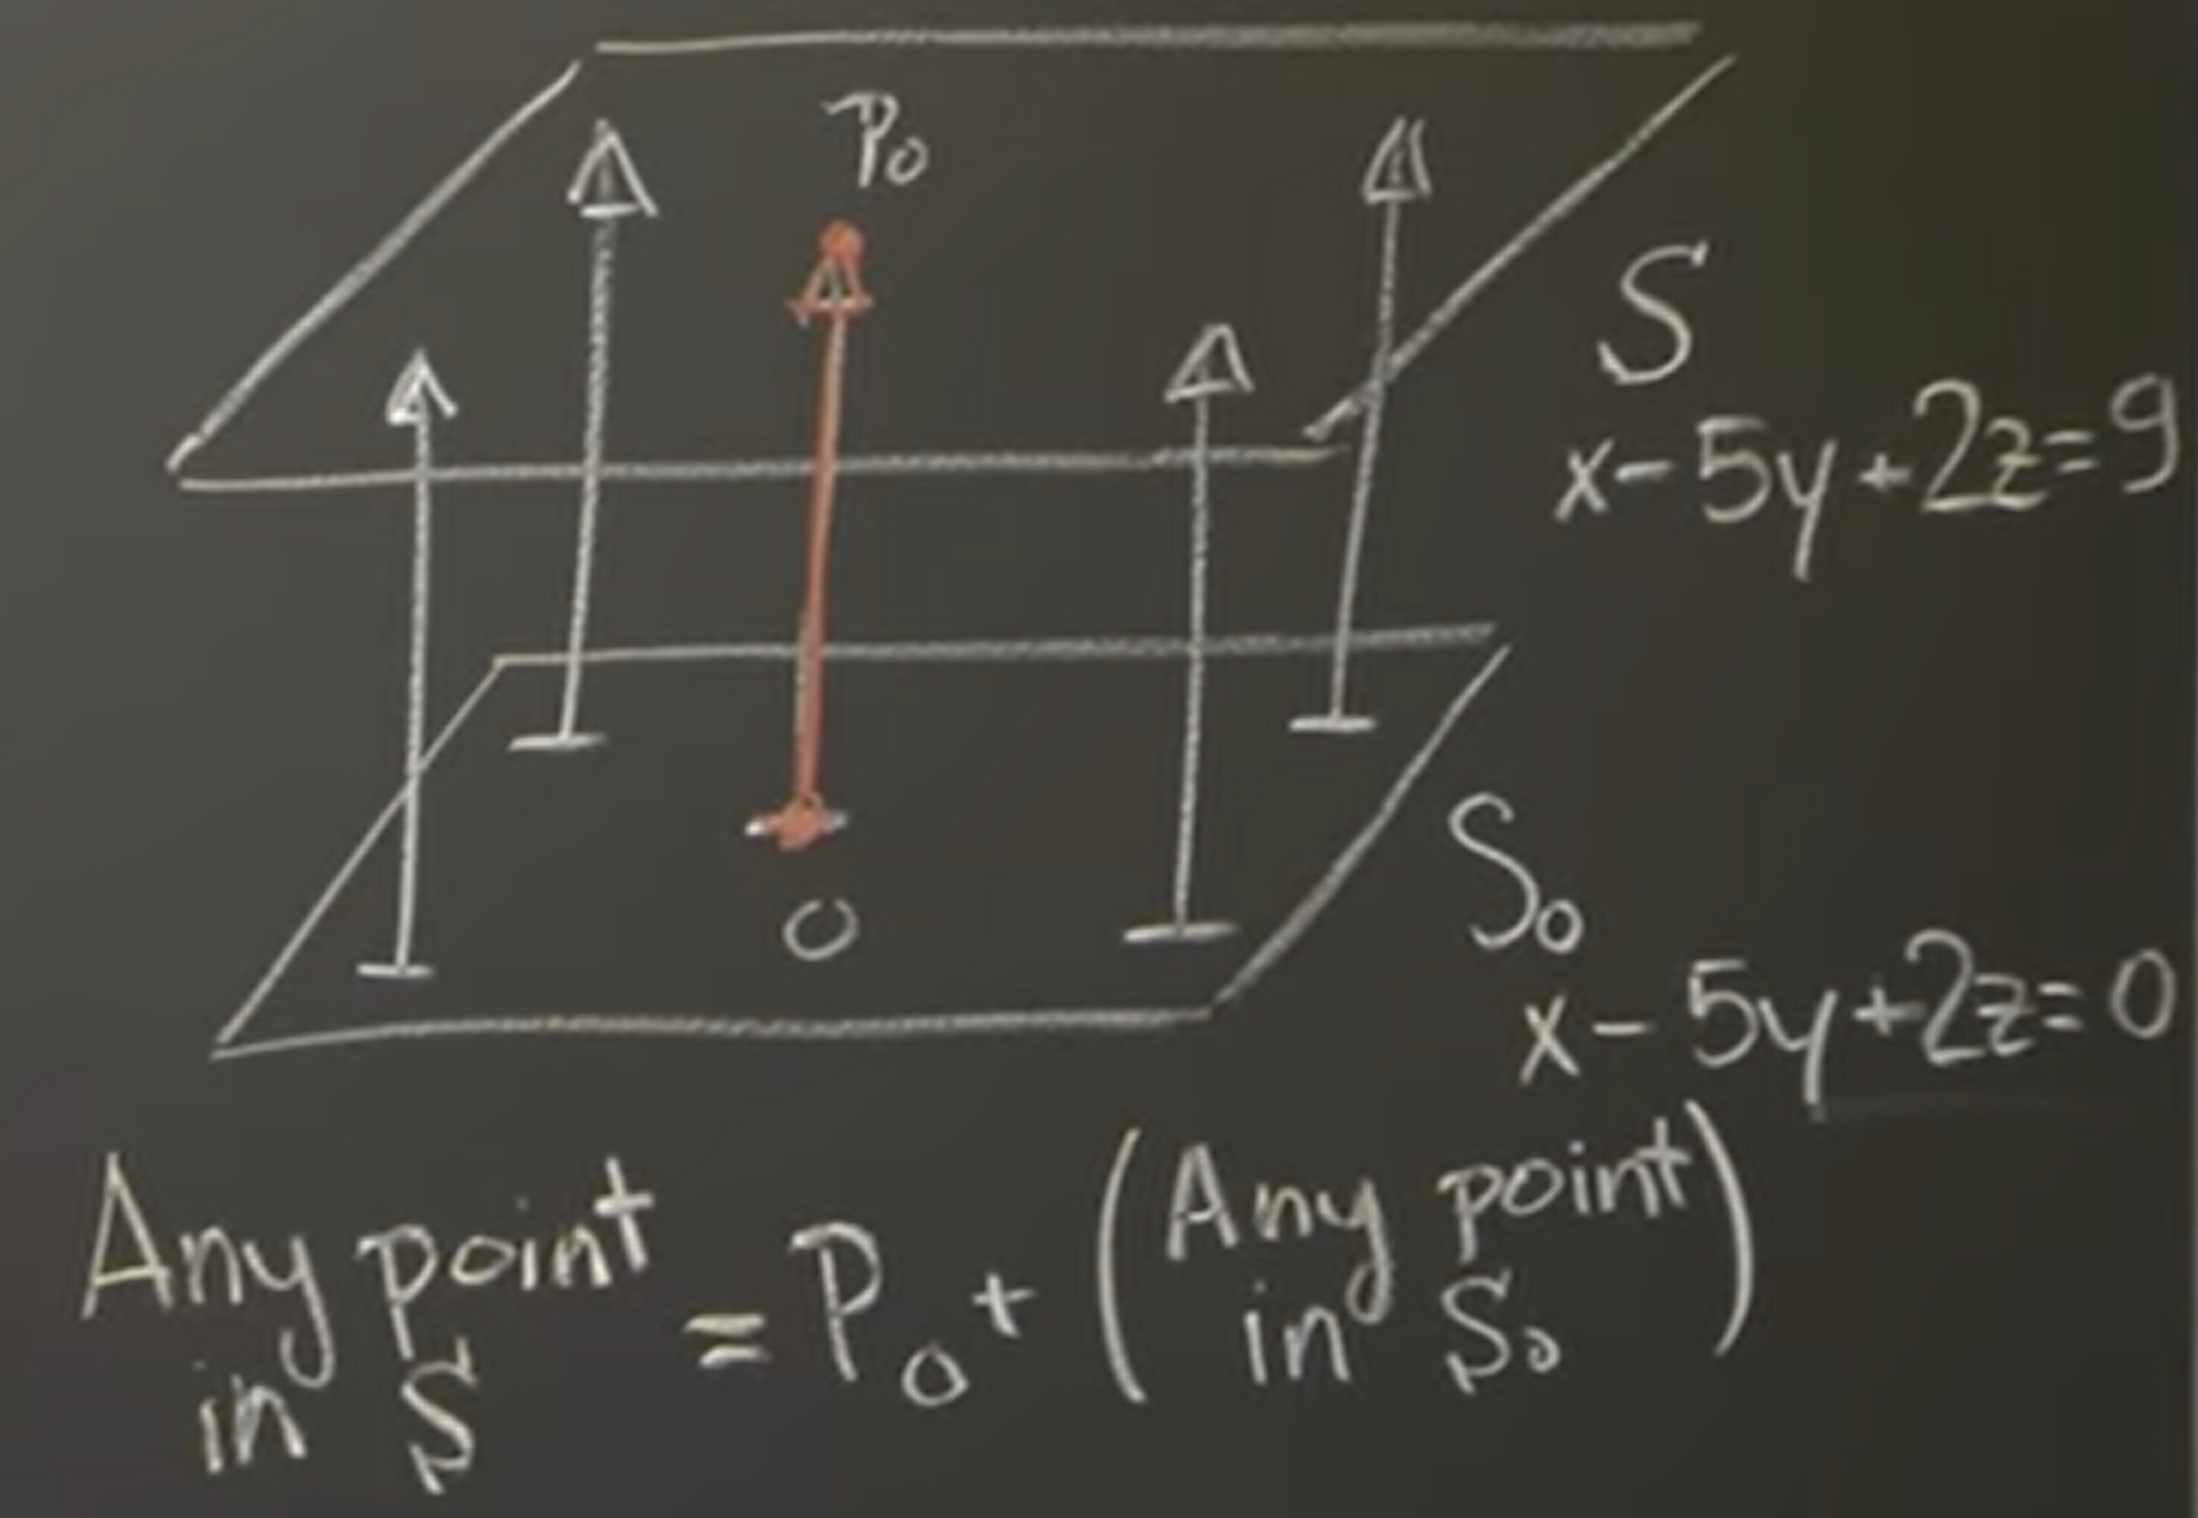 P₀
S
x-5y+2z=9
O
S₀
x-5y+2z=0
Any point in S = P₀ + (Any point in S₀)